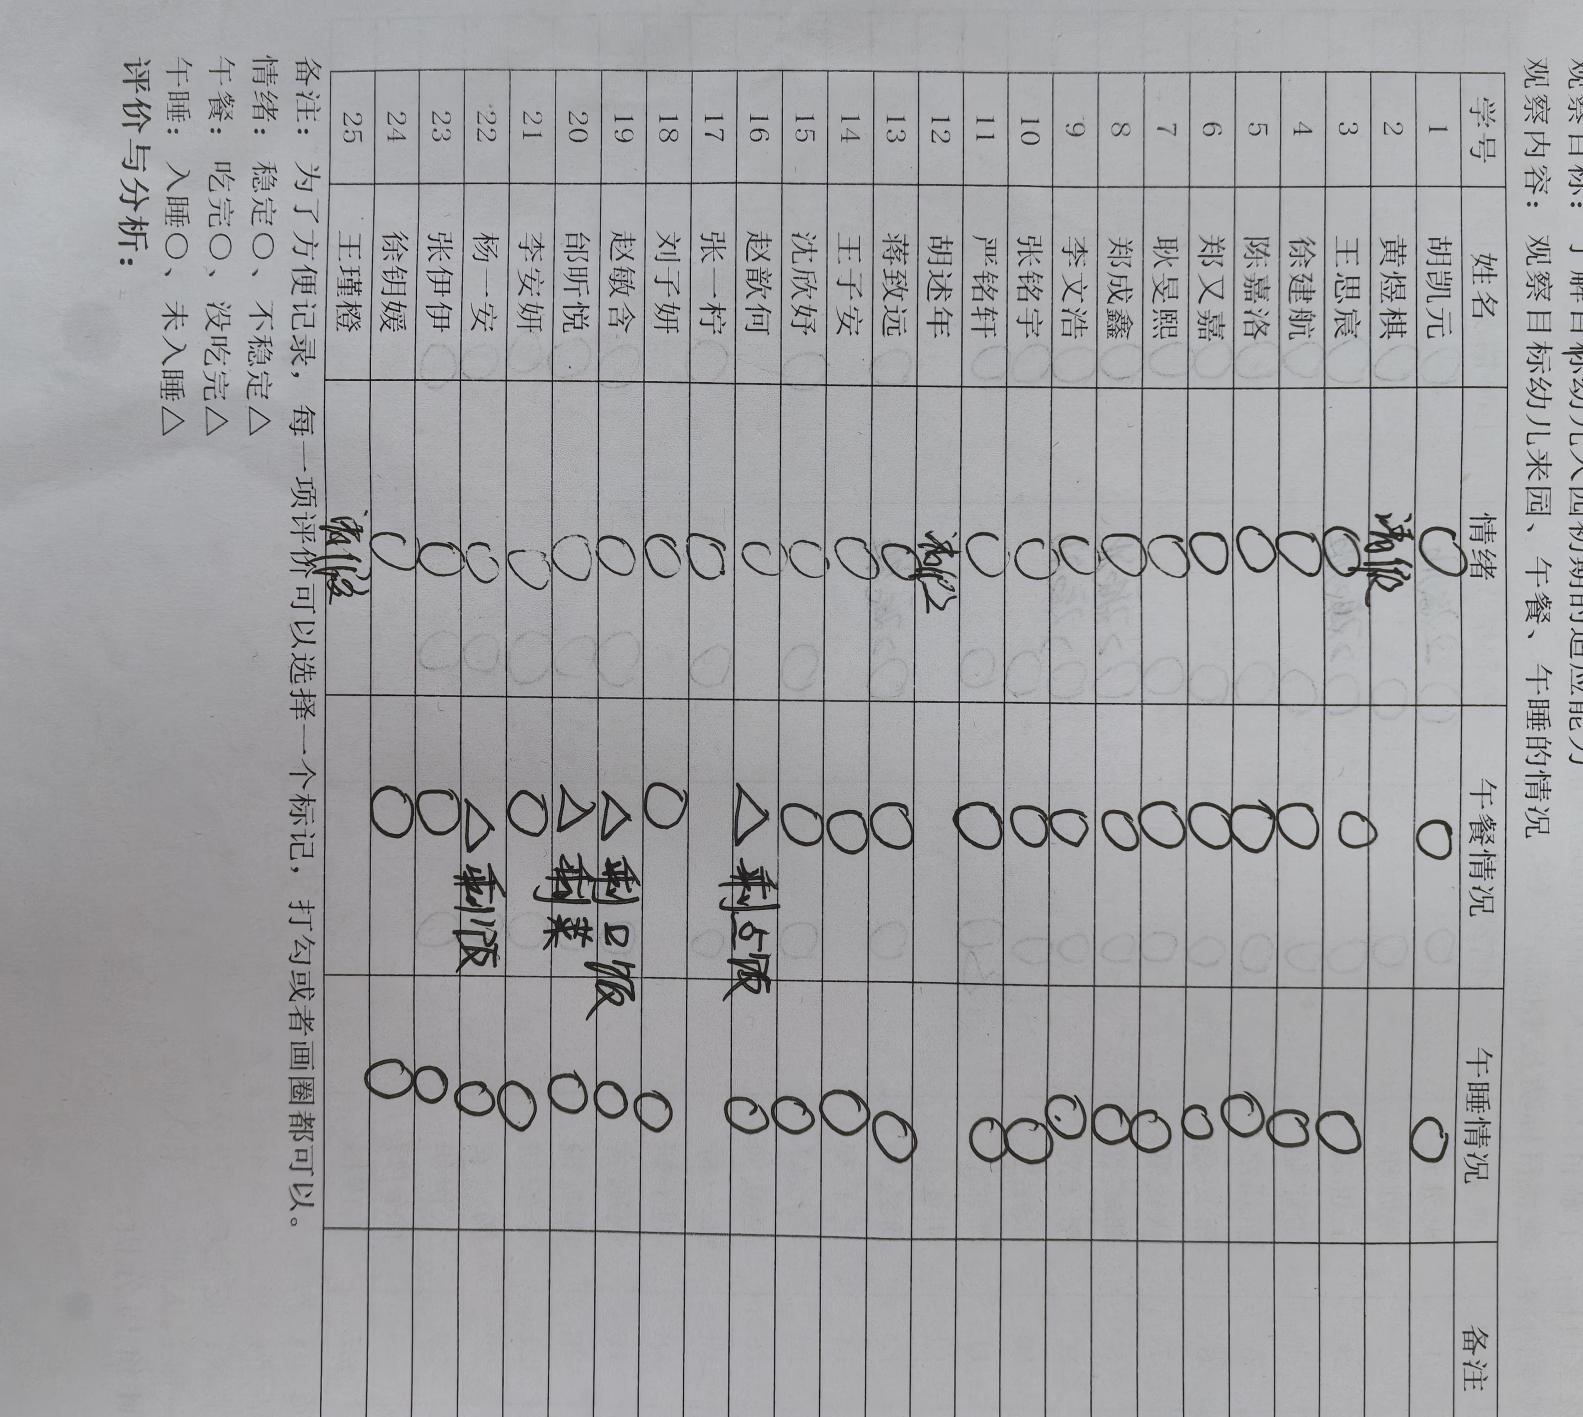 观察目标：了解目标幼儿入园初期的适应能力
观察内容：观察目标幼儿来园、午餐、午睡的情况
学号 姓名 情绪 午餐情况 午睡情况 备注
1 胡凯元 ○ ○ ○
2 黄煜棋 请假
3 王思宸 ○ ○ ○
4 徐建航 ○ ○ ○
5 陈嘉洛 ○ ○ ○
6 郑又嘉 ○ ○ ○
7 耿旻熙 ○ ○ ○
8 郑成鑫 ○ ○ ○
9 李文浩 ○ ○ ○
10 张铭宇 ○ ○ ○
11 严铭轩 ○ ○ ○
12 胡述年 请假
13 蒋致远 ○ ○ ○
14 王子安 ○ ○ ○
15 沈欣妤 ○ ○ ○
16 赵歆何 ○ △ 剩 饭 ○
17 张一柠 ○
18 刘子妍 ○ ○ ○
19 赵敏含 ○ △ 剩口饭 ○
20 邰昕悦 ○ △ 剩菜 ○
21 李安妍 ○ ○ ○
22 杨一安 ○ △ 剩饭 ○
23 张伊伊 ○ ○ ○
24 徐钥媛 ○ ○ ○
25 王瑾橙 请假
备注：为了方便记录，每一项评价可以选择一个标记，打勾或者画圈都可以。
情绪：稳定○、不稳定△
午餐：吃完○、没吃完△
午睡：入睡○、未入睡△
评价与分析：